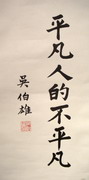 平凡人的不平凡
吳伯雄